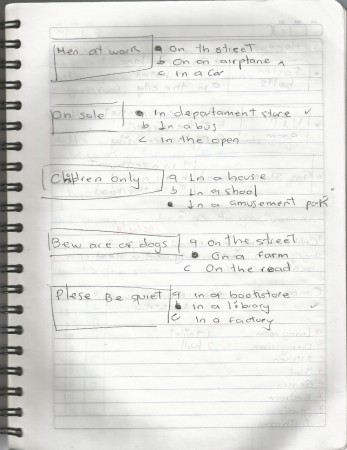 Men at work a on th street
b On an airplane
c In a car
On sale a In departament store
b In a bus
c In the open
Children only a In a house
b In a shool
In a amusement park
Bew are of dogs a on the street
b On a farm
c On the road
Plese Be quiet a in a bookstore
b In a library
c In a factory